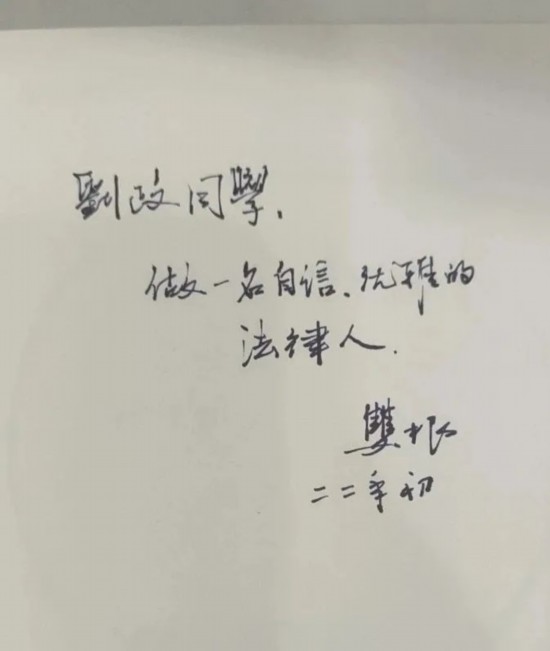 劉政同學、
做一名自信、优雅的
法律人.
雙根
二二年初